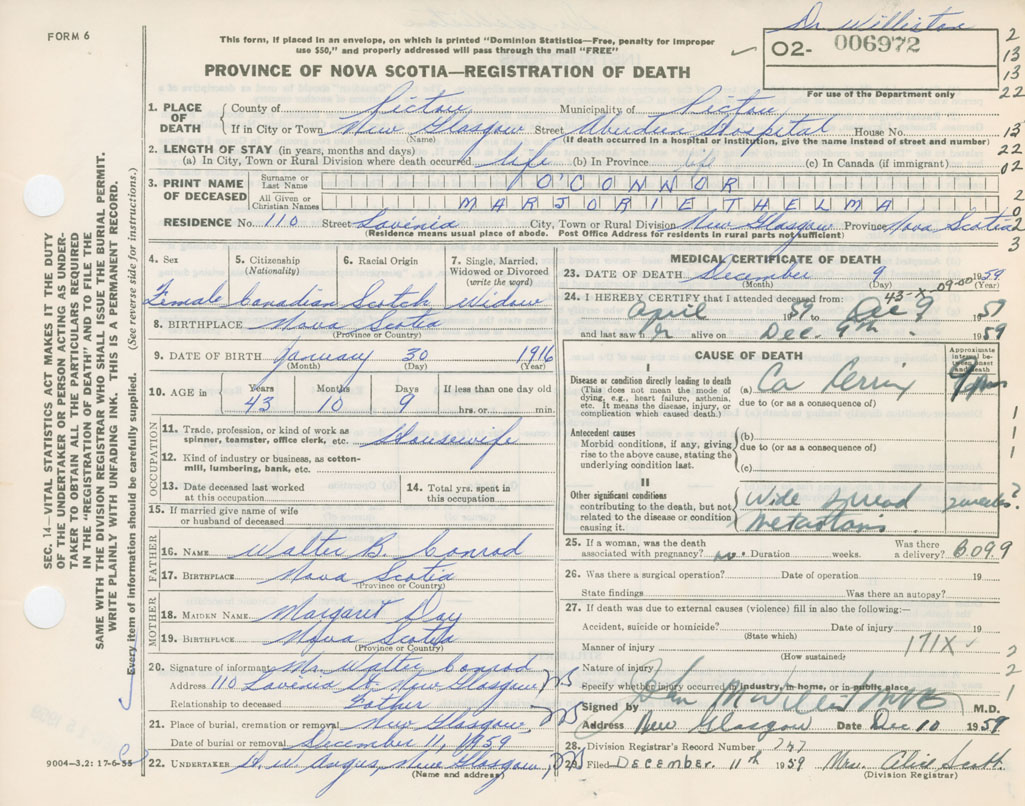 FORM 6
This form, if placed in an envelope, on which is printed "Dominion Statistics—Free, penalty for improper
use $50," and properly addressed will pass through the mail "FREE"
Dr. Williston
O2- 006972
For use of the Department only
PROVINCE OF NOVA SCOTIA—REGISTRATION OF DEATH
1. PLACE OF DEATH County of Pictou Municipality of Pictou
If in City or Town New Glasgow Street Aberdeen Hospital House No.
(Name) (If death occurred in a hospital or institution, give the name instead of street and number)
2. LENGTH OF STAY (in years, months and days)
(a) In City, Town or Rural Division where death occurred life (b) In Province life (c) In Canada (if immigrant)
3. PRINT NAME OF DECEASED
Surname or Last Name O'CONNOR
All Given or Christian Names MARJORIE THELMA
RESIDENCE No. 110 Street Lavinia City, Town or Rural Division New Glasgow Province Nova Scotia
(Residence means usual place of abode. Post Office Address for residents in rural parts not sufficient)
4. Sex
Female
5. Citizenship (Nationality)
Canadian
6. Racial Origin
Scotch
7. Single, Married, Widowed or Divorced (write the word)
Widow
8. BIRTHPLACE Nova Scotia
(Province or Country)
9. DATE OF BIRTH January 30 1916
(Month) (Day) (Year)
10. AGE in Years Months Days If less than one day old
43 10 9 hrs. or min.
OCCUPATION
11. Trade, profession, or kind of work as spinner, teamster, office clerk, etc. Housewife
12. Kind of industry or business, as cotton-mill, lumbering, bank, etc.
13. Date deceased last worked at this occupation
14. Total yrs. spent in this occupation
15. If married give name of wife or husband of deceased
FATHER
16. NAME Walter B. Conrad
17. BIRTHPLACE Nova Scotia
(Province or Country)
MOTHER
18. MAIDEN NAME Margaret Day
19. BIRTHPLACE Nova Scotia
(Province or Country)
20. Signature of informant Mr. Walter Conrad
Address 110 Lavinia St. New Glasgow, NS
Relationship to deceased Father
21. Place of burial, cremation or removal New Glasgow, NS
Date of burial or removal December 11, 1959
22. UNDERTAKER H. W. Angus, New Glasgow, NS
(Name and address)
9004-3.2: 17-6-55
MEDICAL CERTIFICATE OF DEATH
23. DATE OF DEATH December 9 1959
(Month) (Day) (Year)
43-X-09-00
24. I HEREBY CERTIFY that I attended deceased from:
April 1959 to Dec 9 1959
and last saw her alive on Dec. 9th. 1959
CAUSE OF DEATH
Approximate interval between onset and death
I
Disease or condition directly leading to death
(This does not mean the mode of dying, e.g., heart failure, asthenia, etc. It means the disease, injury, or complication which caused death.)
(a) Ca Cervix
due to (or as a consequence of)
Antecedent causes
Morbid conditions, if any, giving rise to the above cause, stating the underlying condition last.
(b)
due to (or as a consequence of)
(c)
II
Other significant conditions contributing to the death, but not related to the disease or condition causing it.
Wide spread
metastasis
25. If a woman, was the death associated with pregnancy? no. Duration weeks. Was there a delivery? B099
26. Was there a surgical operation? Date of operation 19
State findings Was there an autopsy?
27. If death was due to external causes (violence) fill in also the following:—
Accident, suicide or homicide? Date of injury 19
(State which)
Manner of injury 171X
(How sustained)
Nature of injury
Specify whether injury occurred in industry, in home, or in public place
Signed by M.D.
Address New Glasgow Date Dec 10 1959
28. Division Registrar's Record Number 247
29. Filed DECEMBER 11th 1959 Mrs. Alice Scott
(Division Registrar)
SEC. 14—VITAL STATISTICS ACT MAKES IT THE DUTY
OF THE UNDERTAKER OR PERSON ACTING AS UNDER-
TAKER TO OBTAIN ALL THE PARTICULARS REQUIRED
IN THE "REGISTRATION OF DEATH" AND TO FILE THE
SAME WITH THE DIVISION REGISTRAR WHO SHALL ISSUE THE BURIAL PERMIT.
WRITE PLAINLY WITH UNFADING INK. THIS IS A PERMANENT RECORD.
Every item of information should be carefully supplied. (See reverse side for instructions.)
2
13
13
22
13
22
02
2
0
2
3
1
1
1
2
2
1